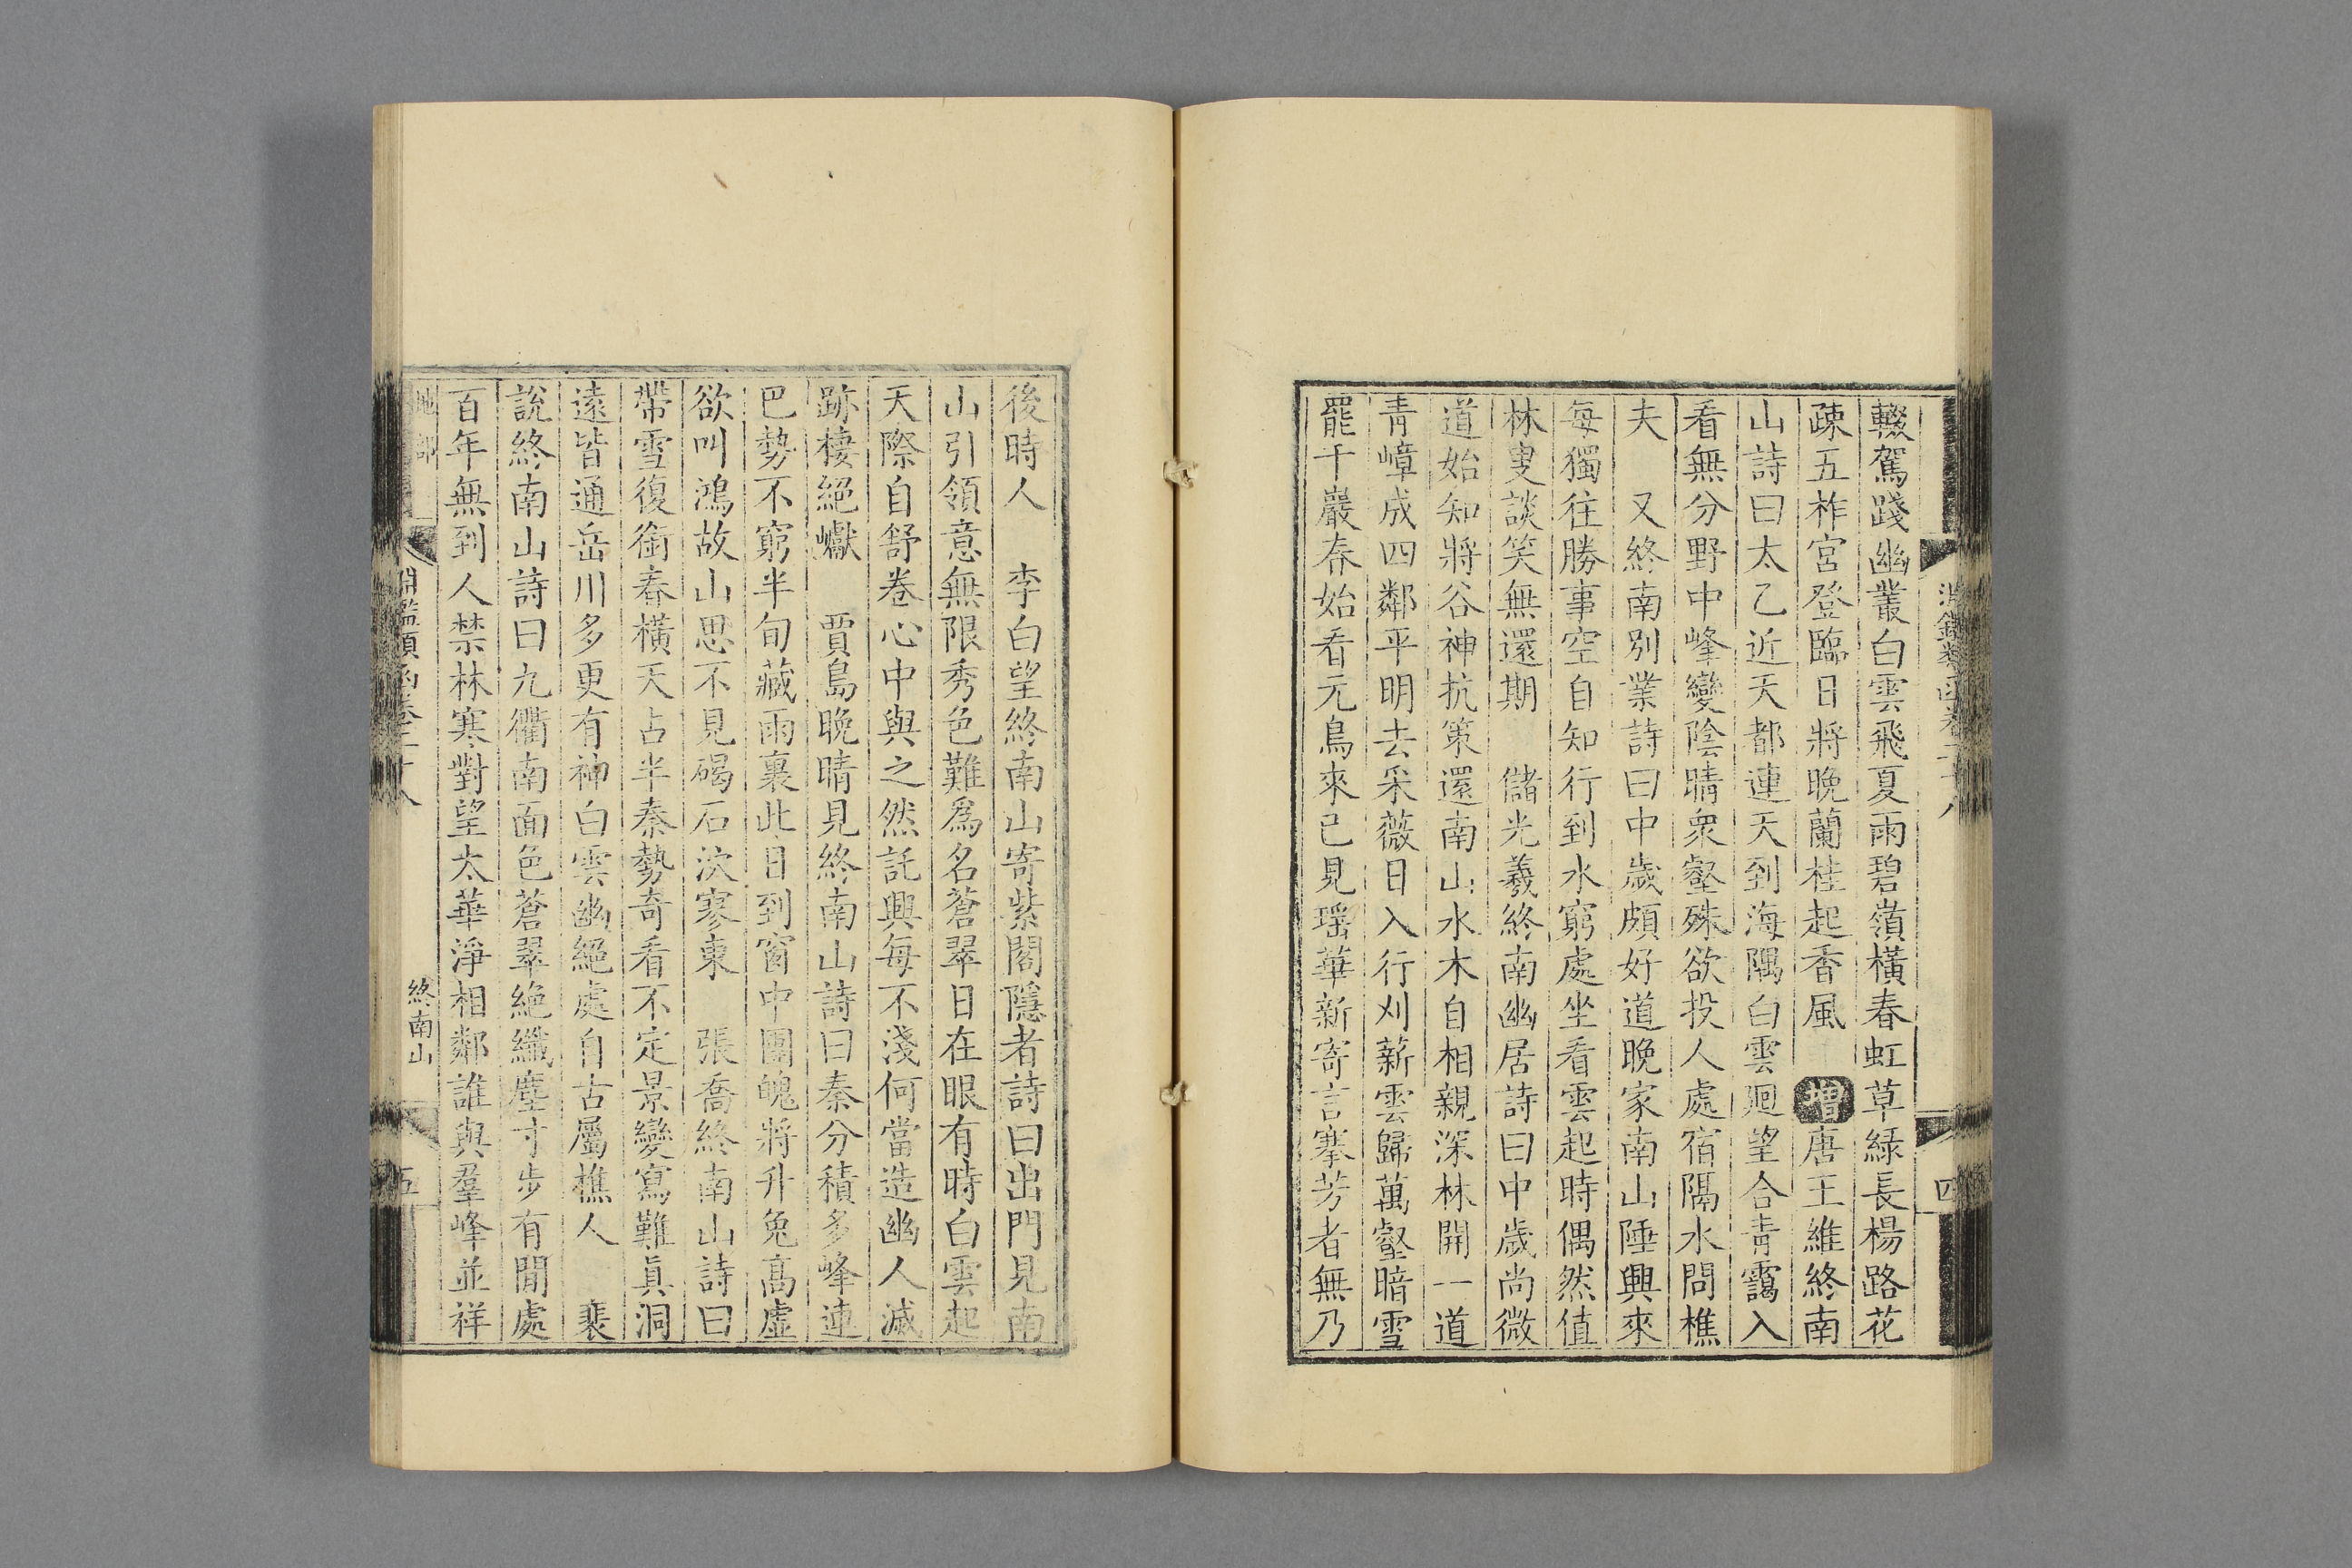 輟駕踐幽叢白雲飛夏雨碧嶺橫春虹草綠長楊路花
疎五柞宮登臨日將晚蘭桂起香風　增唐王維終南
山詩曰太乙近天都連天到海隅白雲廻望合青靄入
看無分野中峰變陰晴衆壑殊欲投人處宿隔水問樵
夫　又終南別業詩曰中歲頗好道晚家南山陲興來
每獨往勝事空自知行到水窮處坐看雲起時偶然值
林叟談笑無還期　儲光羲終南幽居詩曰中歲尚微
道始知將谷神抗策還南山水木自相親深林開一道
青嶂成四鄰平明去采薇日入行刈薪雲歸萬壑暗雪
罷千巖春始看元鳥來已見瑶華新寄言搴芳者無乃
四
後時人　李白望終南山寄紫閣隱者詩曰出門見南
山引領意無限秀色難爲名蒼翠日在眼有時白雲起
天際自舒卷心中與之然託興每不淺何當造幽人滅
跡棲絕巘　賈島晚晴見終南山詩曰秦分積多峰連
巴勢不窮半旬藏雨裏此日到窗中圓魄將升兔高虛
欲叫鴻故山思不見碣石泬寥東　張喬終南山詩曰
帶雪復銜春橫天占半秦勢奇看不定景變寫難眞洞
遠皆通岳川多更有神白雲幽絕處自古屬樵人　裴
說終南山詩曰九衢南面色蒼翠絕纖塵寸步有閒處
百年無到人禁林寒對望太華淨相鄰誰與羣峰並祥
地部　淵鑑類函卷二十八　終南山　五